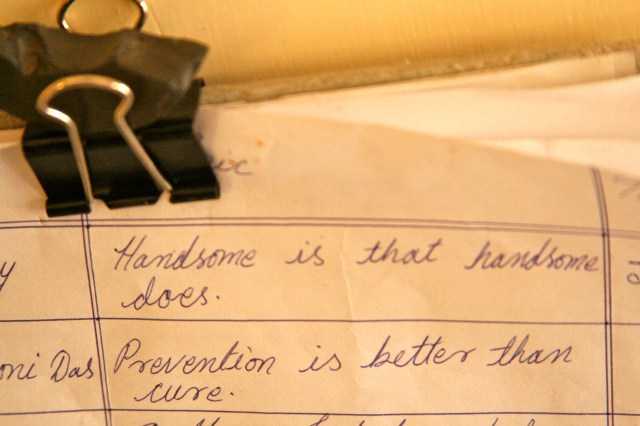 Handsome is that handsome
does.
Das Prevention is better than
cure.